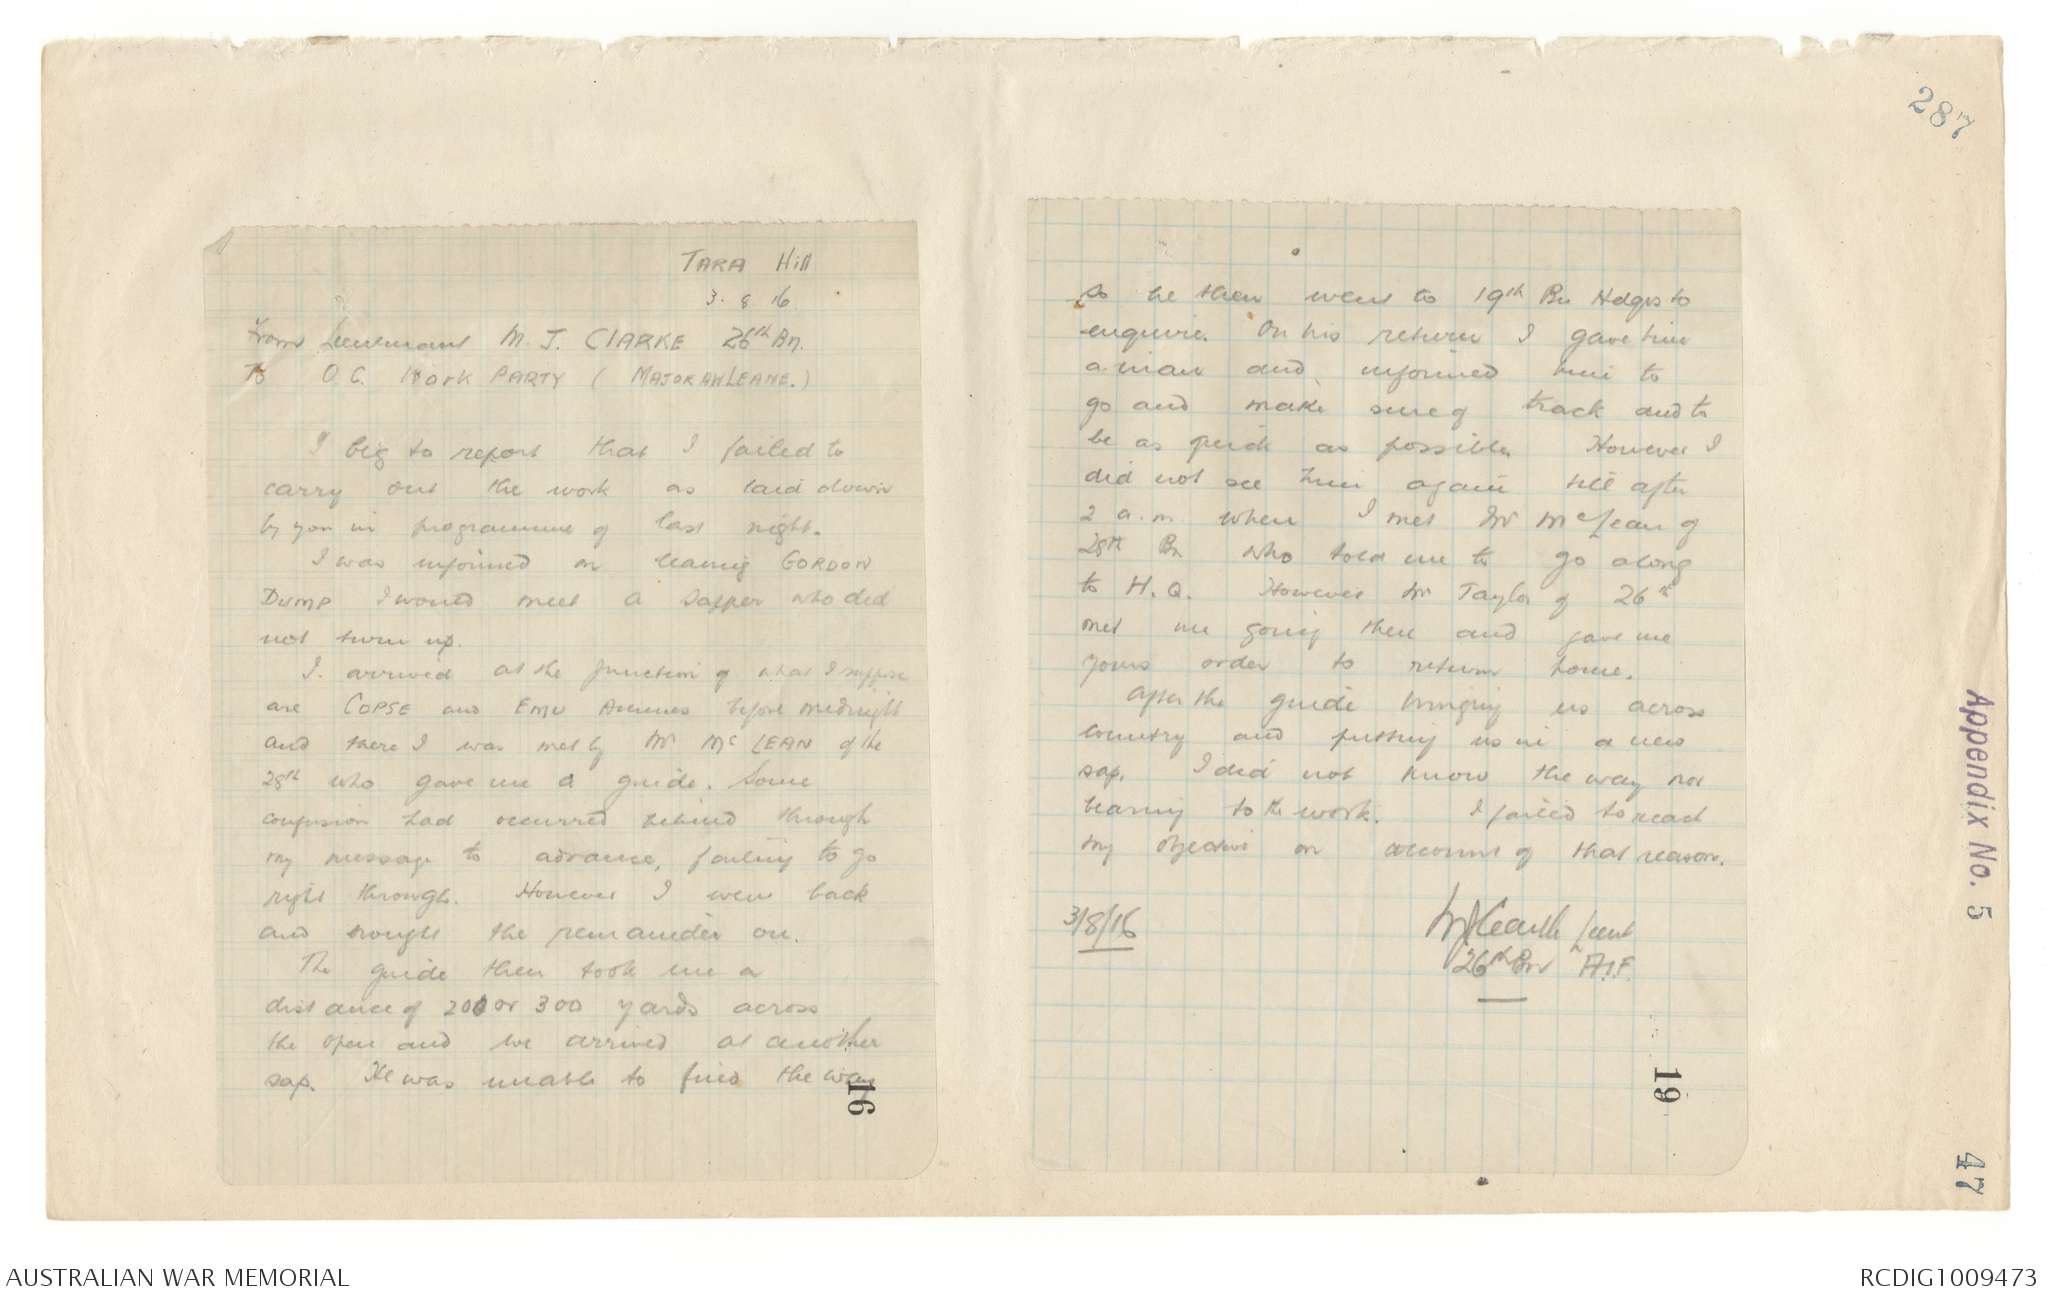 287
TARA Hill
3. 8 16.
From Lieutenant M. J. CLARKE 26th Bn.
To O.C. Work PARTY (MAJOR A W LEANE.)
I beg to report that I failed to
carry out the work as laid down
by you in programme of last night.
I was informed on leaving GORDON
DUMP I would meet a Sapper who did
not turn up.
I. arrived at the junction of what I suppose
are COPSE and EMU Avenues before midnight
and there I was met by Mr McLEAN of the
28th who gave me a guide. Some
confusion had occurred behind through
my message to advance, failing to go
right through. However I went back
and brought the remainder on.
The guide then took me a
distance of 200 or 300 yards across
the open and we arrived at another
sap. He was unable to find the way
16
so he then went to 19th Bn Hdqrs to
enquire. On his return I gave him
a man and informed him to
go and make sure of track and to
be as quick as possible. However I
did not see him again till after
2 a.m when I met Mr McLean of
28th Bn who told me to go along
to H.Q. However Mr Taylor of 26th
met me going there and gave me
yours order to return home.
After the guide bringing us across
country and putting us in a new
sap. I did not know the way nor
bearing to the work. I failed to reach
my objective on account of that reason.
3/8/16
Lieut
26th Bn A.I.F.
19
Appendix No. 5
47
AUSTRALIAN WAR MEMORIAL
RCDIG1009473